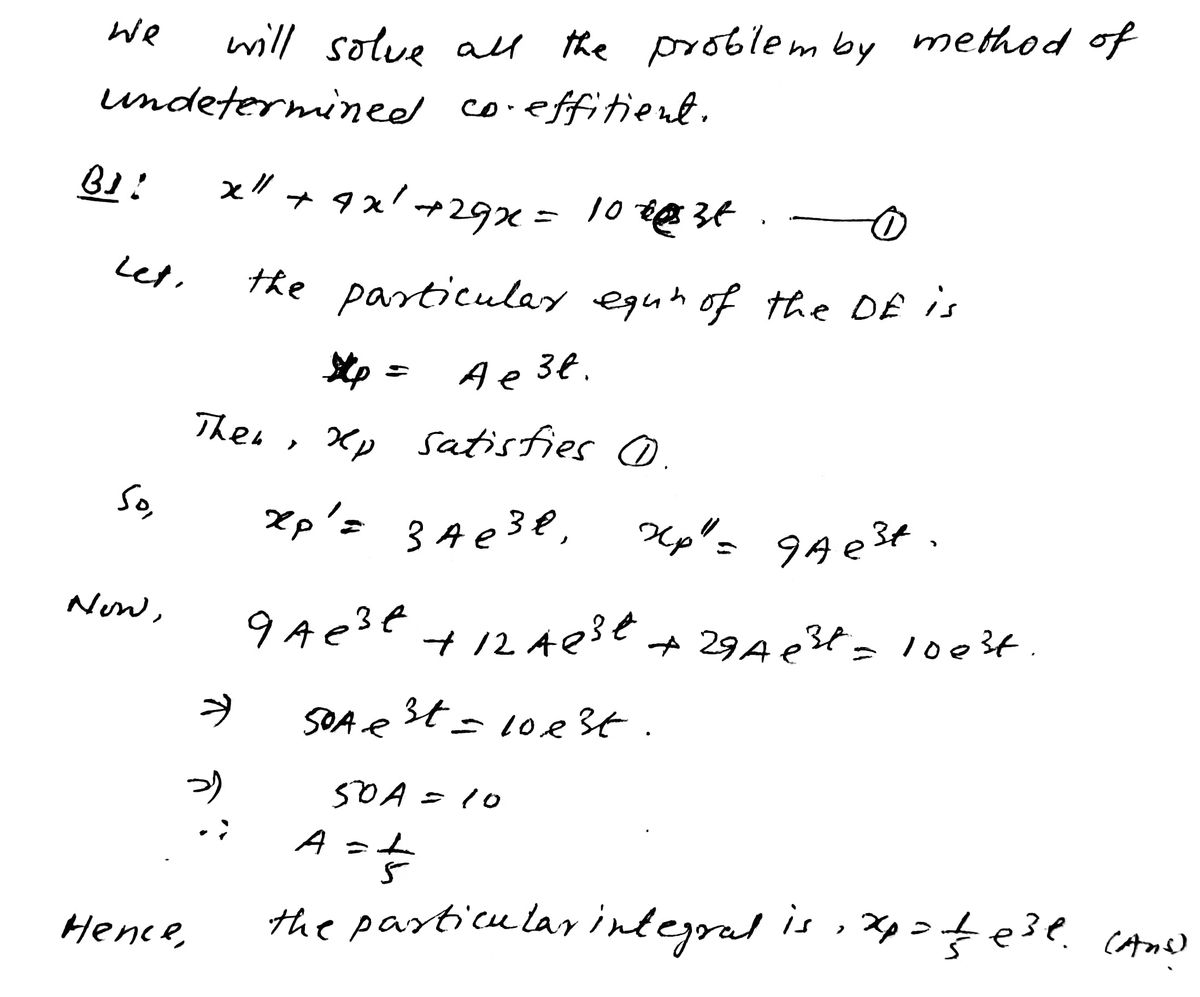 We will solve all the problem by method of
undetermined co-effitient.
B1: x'' + 4x' + 29x = 10 e^3t. —①
Let. the particular equn of the DE is
xp = A e^3t.
Then, xp satisfies ①.
So, xp' = 3Ae^3t, xp'' = 9Ae^3t.
Now, 9Ae^3t + 12Ae^3t + 29Ae^3t = 10e^3t.
⇒ 50Ae^3t = 10e^3t.
⇒ 50A = 10
∴ A = 1/5
Hence, the particular integral is, xp = 1/5 e^3t. (Ans)